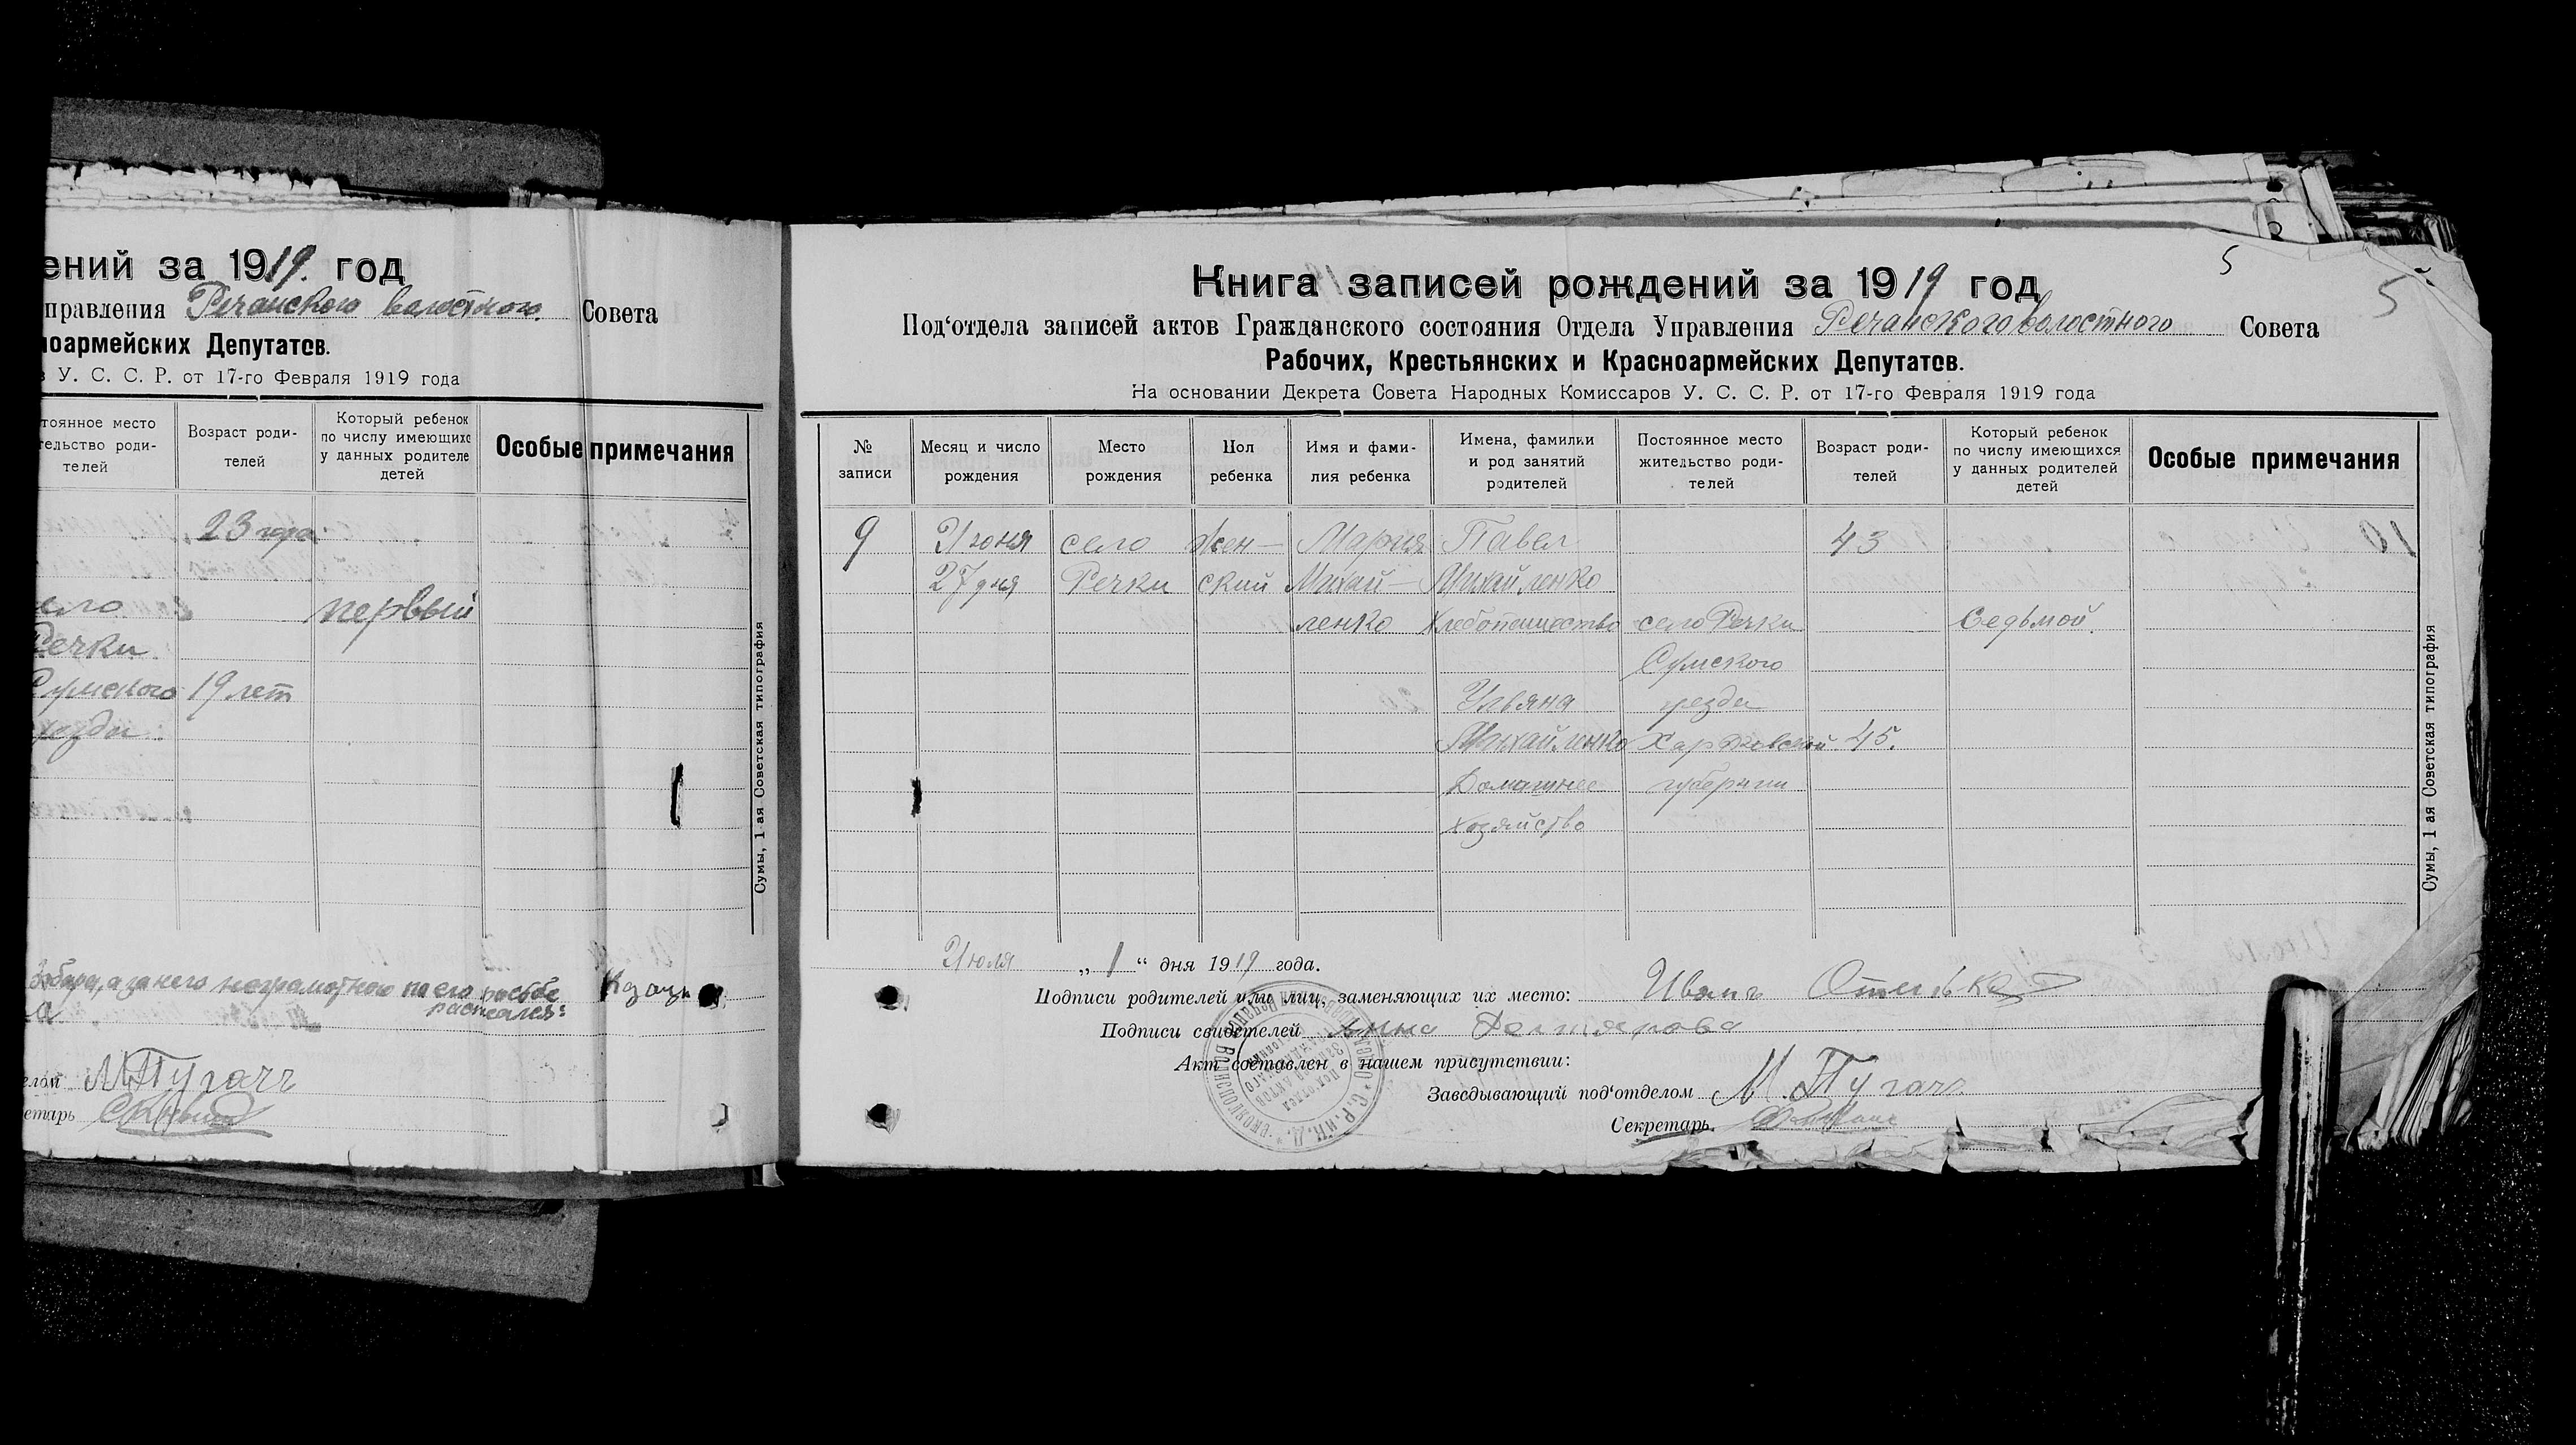 ений за 1919. год
правления Речанского волостного. Совета
ноармейских Депутатов.
в У. С. С. Р. от 17-го Февраля 1919 года
тоянное место
тельство роди-
телей
Возраст роди-
телей
Который ребенок
по числу имеющихс
у данных родителе
детей
Особые примечания
23 года
ело
первый
Речки
Сумского 19 лет
уезда
а за него неграмотного по его
расписался:
елом М Пугачъ
етарь
Сумы, 1 ая Советская типография
5
5
Книга записей рождений за 1919 год
Под'отдела записей актов Гражданского состояния Отдела Управления Речанского волостного Совета
Рабочих, Крестьянских и Красноармейских Депутатов.
На основании Декрета Совета Народных Комиссаров У. С. С. Р. от 17-го Февраля 1919 года
№
записи
Месяц и число
рождения
Место
рождения
Пол
ребенка
Имя и фами-
лия ребенка
Имена, фамилии
и род занятий
родителей
Постоянное место
жительство роди-
телей
Возраст роди-
телей
Который ребенок
по числу имеющихся
у данных родителей
детей
Особые примечания
9 Июня село Жен- Мария Павел 43
27 дня Речки ский Михай- Михайленко
ленко Хлебопашество село Речки Седьмой.
Сумского
Ульяна уезда
Михайленко Харьковской 45.
Домашнее губернии
хозяйство
Июля „1“ дня 1919 года.
Подписи родителей или лиц, заменяющих их место: Иванъ
Подписи свидетелей Анна
Акт составлен в нашем присутствии:
Заведывающий под'отделом М. Пугачъ
Секретарь
Сумы, 1 ая Советская типография